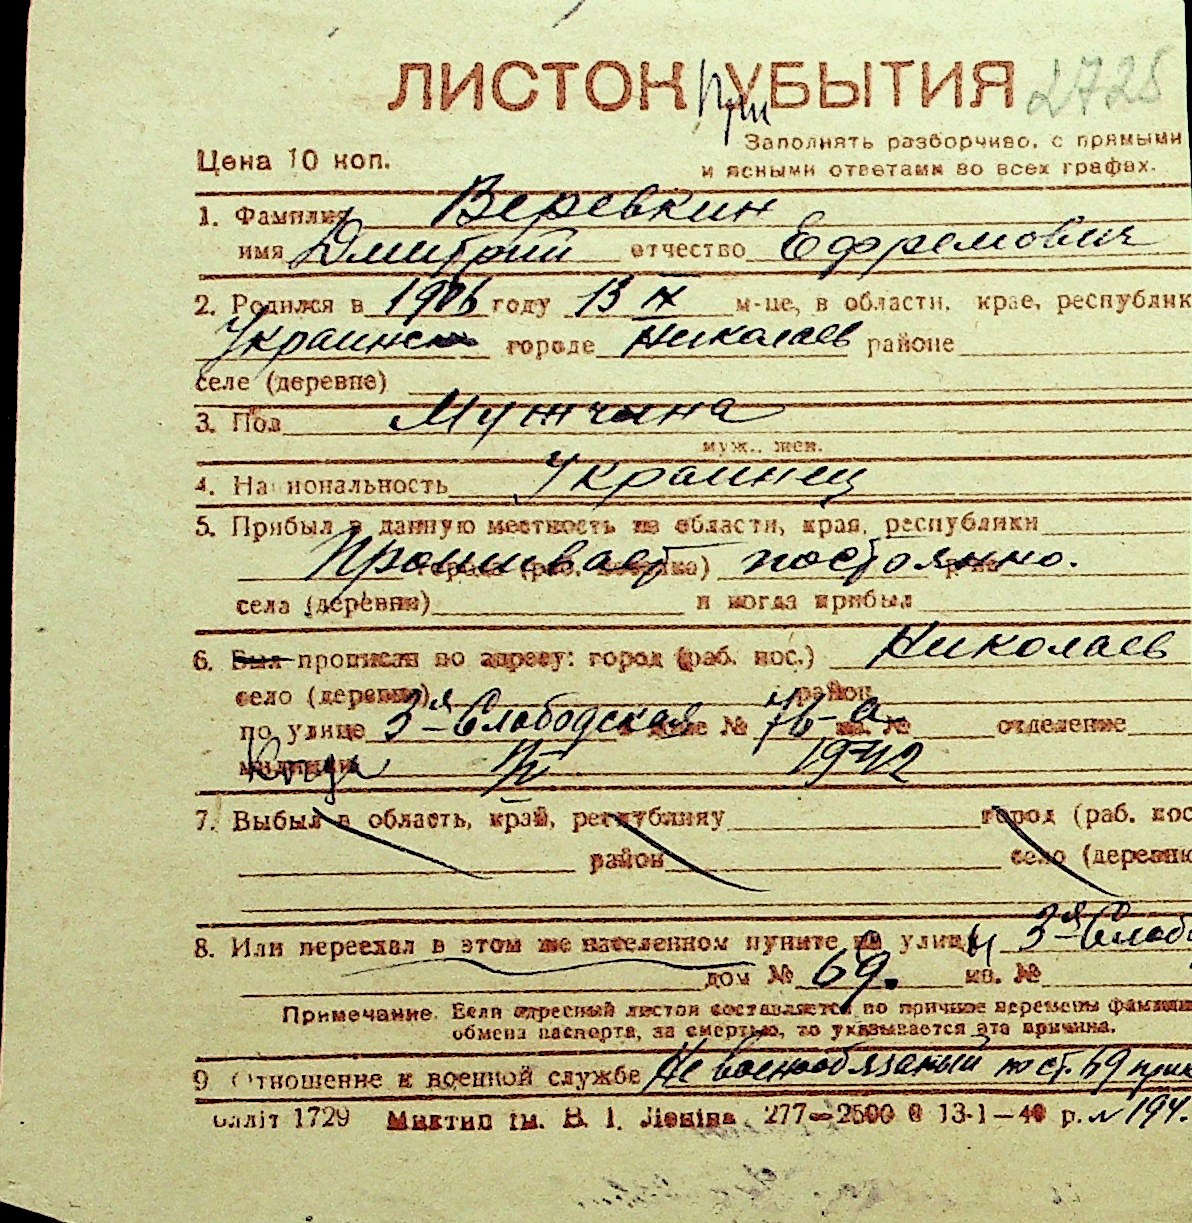 ЛИСТОК при УБЫТИЯ 2725
Заполнять разборчиво, с прямыми
Цена 10 коп. и ясными ответами во всех графах.
1. Фамилия Веревкин
имя Дмитрий отчество Ефремович
2. Родился в 1906 году 13 X м-це, в области, крае, республик
Украинск городе Николаев районе
селе (деревне)
3. Пол Мужчина
муж., жен.
4. Национальность Украинец
5. Прибыл в данную местность из области, края, республики
Проживает постоянно.
села (деревни) и когда прибыл
6. Был прописан по адресу: город (раб. пос.) Николаев
село (деревня) район
по улице 3я Слободская доме № 76-а кв. № отделение
милиции 1942
7. Выбыл в область, край, республику город (раб. пос
район село (деревню
8. Или переехал в этом же населенном пункте на улицу 3я Слоб
дом № 69. кв. №
Примечание. Если адресный листок составляется по причине перемены фамилии
обмена паспорта, за смертью, то указывается эта причина.
9. Отношение к военной службе Не военнообязаный по ст. 69 прик
Облліт 1729 Миктип ім. В. І. Леніна 277—2500 0 13-1—40 р. № 194.